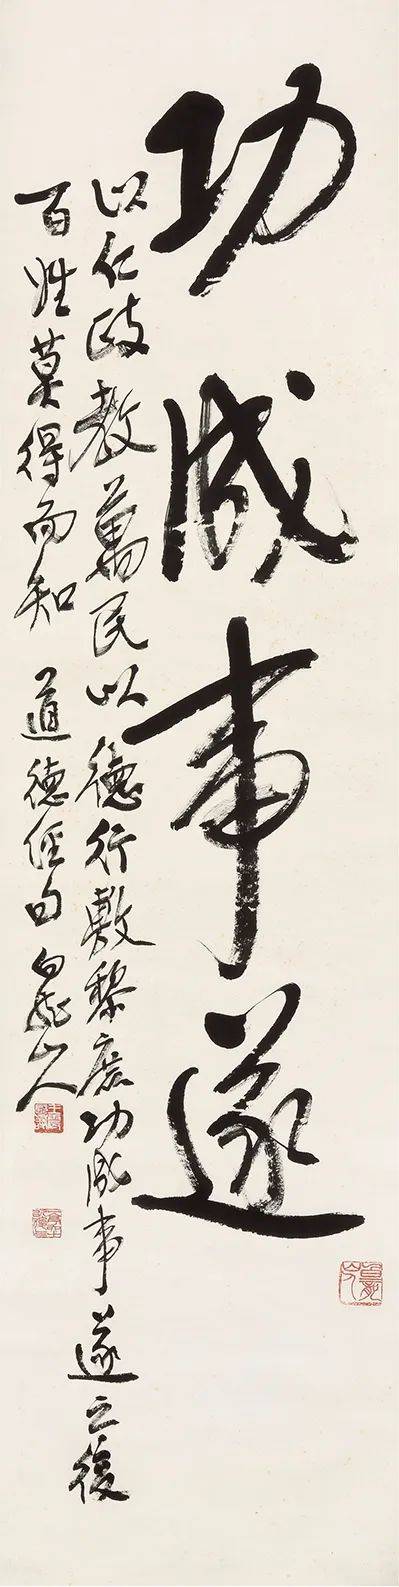 功成事遂
以仁政教萬民以德行敷黎庶功成事遂之後
百姓莫得而知 道德經句 白龍山人